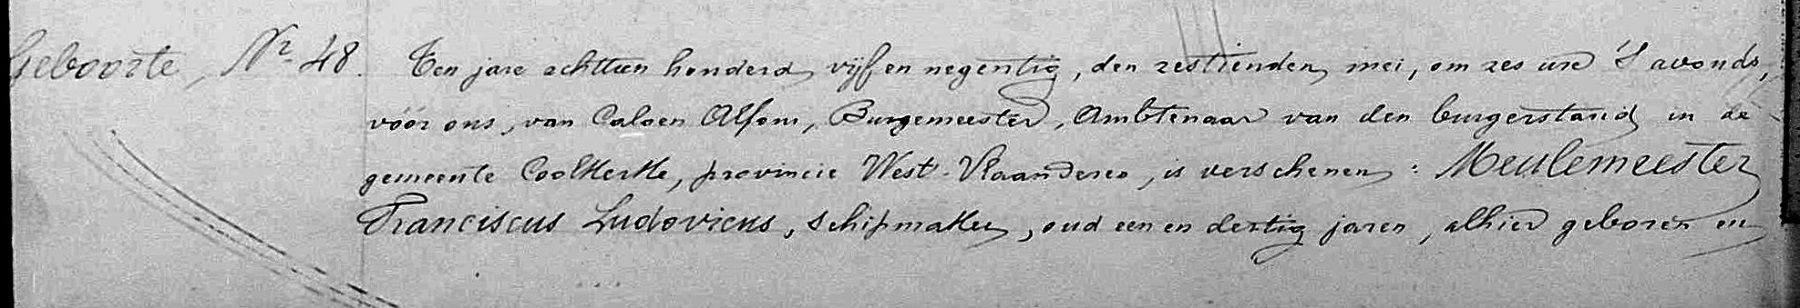 Geboorte, Nr. 48. Ten jare achttien honderd vijf en negentig, den zestienden mei, om zes ure 's avonds,
vóór ons, van Caloen Alfons, Burgemeester, Ambtenaar van den burgerstand in de
gemeente Coolkerke, provincie West-Vlaanderen, is verschenen : Meulemeester
Franciscus Ludovicus, schipmaker, oud een en dertig jaren, alhier geboren en